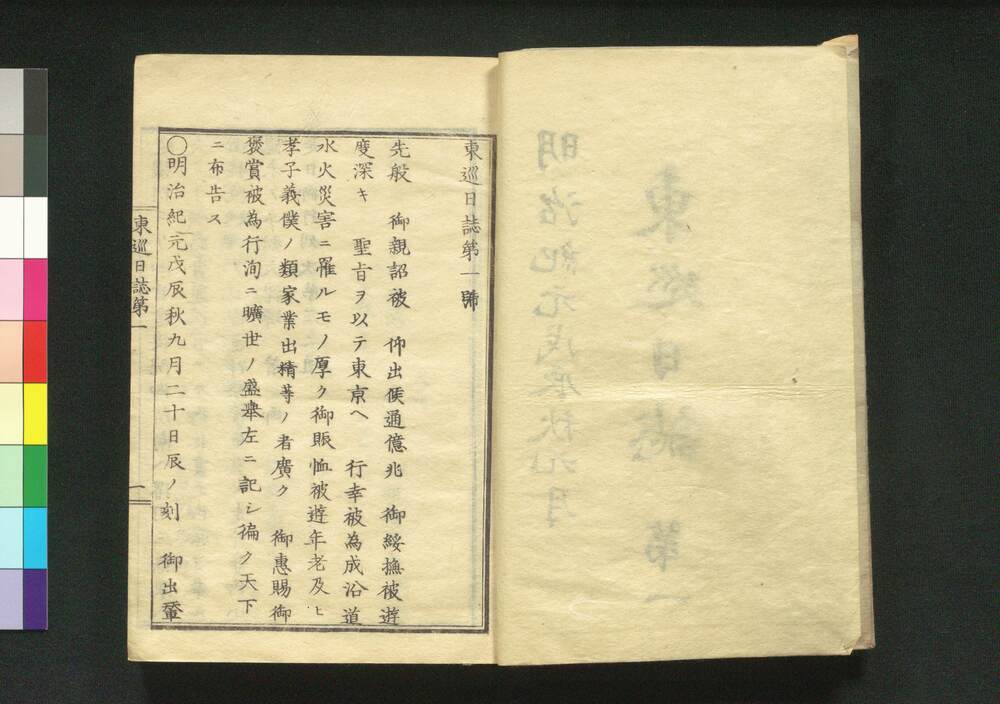 東巡日誌第一號
先般　御親詔被　仰出候通億兆　御綏撫被遊
度深キ　聖旨ヲ以テ東京ヘ　行幸被為成沿道
水火災害ニ罹ルモノ厚ク御賑恤被遊年老及ヒ
孝子義僕ノ類家業出精等ノ者廣ク　御惠賜御
褒賞被為行洵ニ曠世ノ盛擧左ニ記シ徧ク天下
ニ布告ス
〇明治紀元戊辰秋九月二十日辰ノ刻　御出輦
東巡日誌第一
一
明治紀元戊辰秋九月
東巡日誌　第一